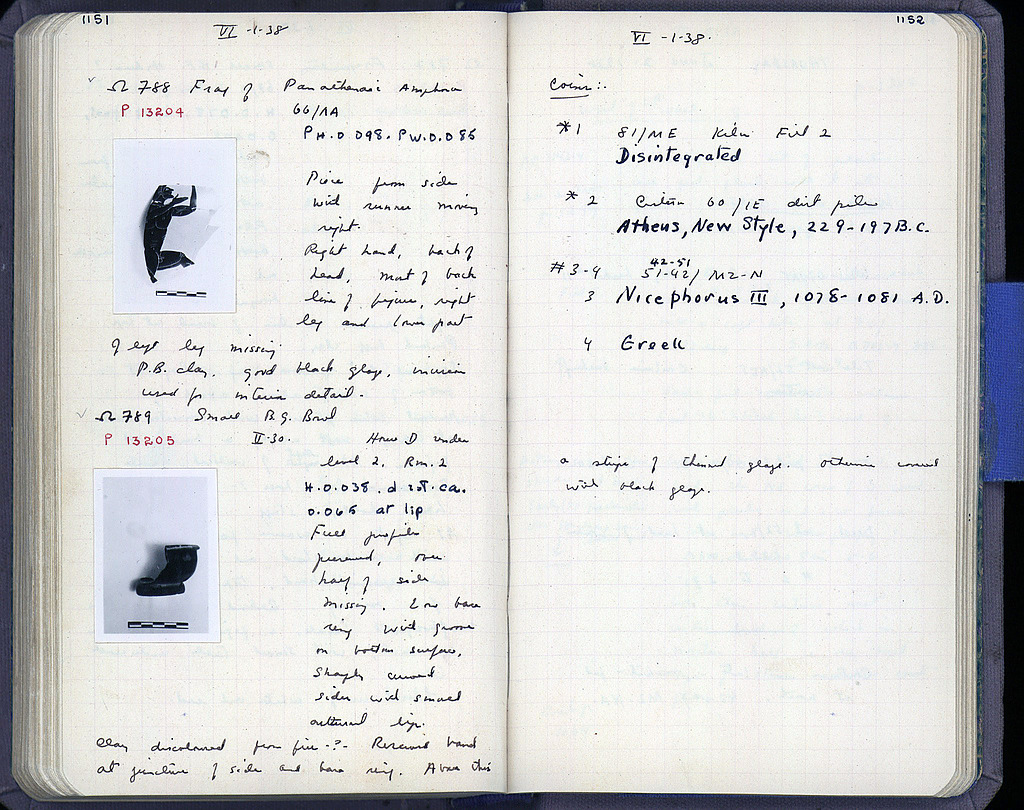 1151
VI -1-38
Ω 788 Frag of Panathenaic Amphora
P 13204
66/ΛA
PH.0.098. PW.0.086
Piece from side
with runner moving
right.
Right hand, back of
head, most of back
line of figure, right
leg and lower part
of left leg missing.
P.B. clay. good black glaze, incision
used for interior detail.
Ω 789 Small B.G. Bowl
P 13205
II-30. House D under
level 2. Rm. 2
H.0.038. d. est. ca.
0.065 at lip
Full profile
preserved, over
half of side
missing. Low base
ring with groove
on bottom surface.
Sharply curved
sides with small
outturned lip.
Clay discoloured from fire -?- Reserved band
at juncture of side and base ring. Above this
1152
VI -1-38.
Coins:.
*1 81/ME Kiln Fill 2
Disintegrated
*2 60/IE dirt pile
Athens, New Style, 229-197 B.C.
42-51
#3-4 51-42/MZ-N
3 Nicephorus III, 1078-1081 A.D.
4 Greek
a stripe of thinned glaze. Otherwise covered
with black glaze.